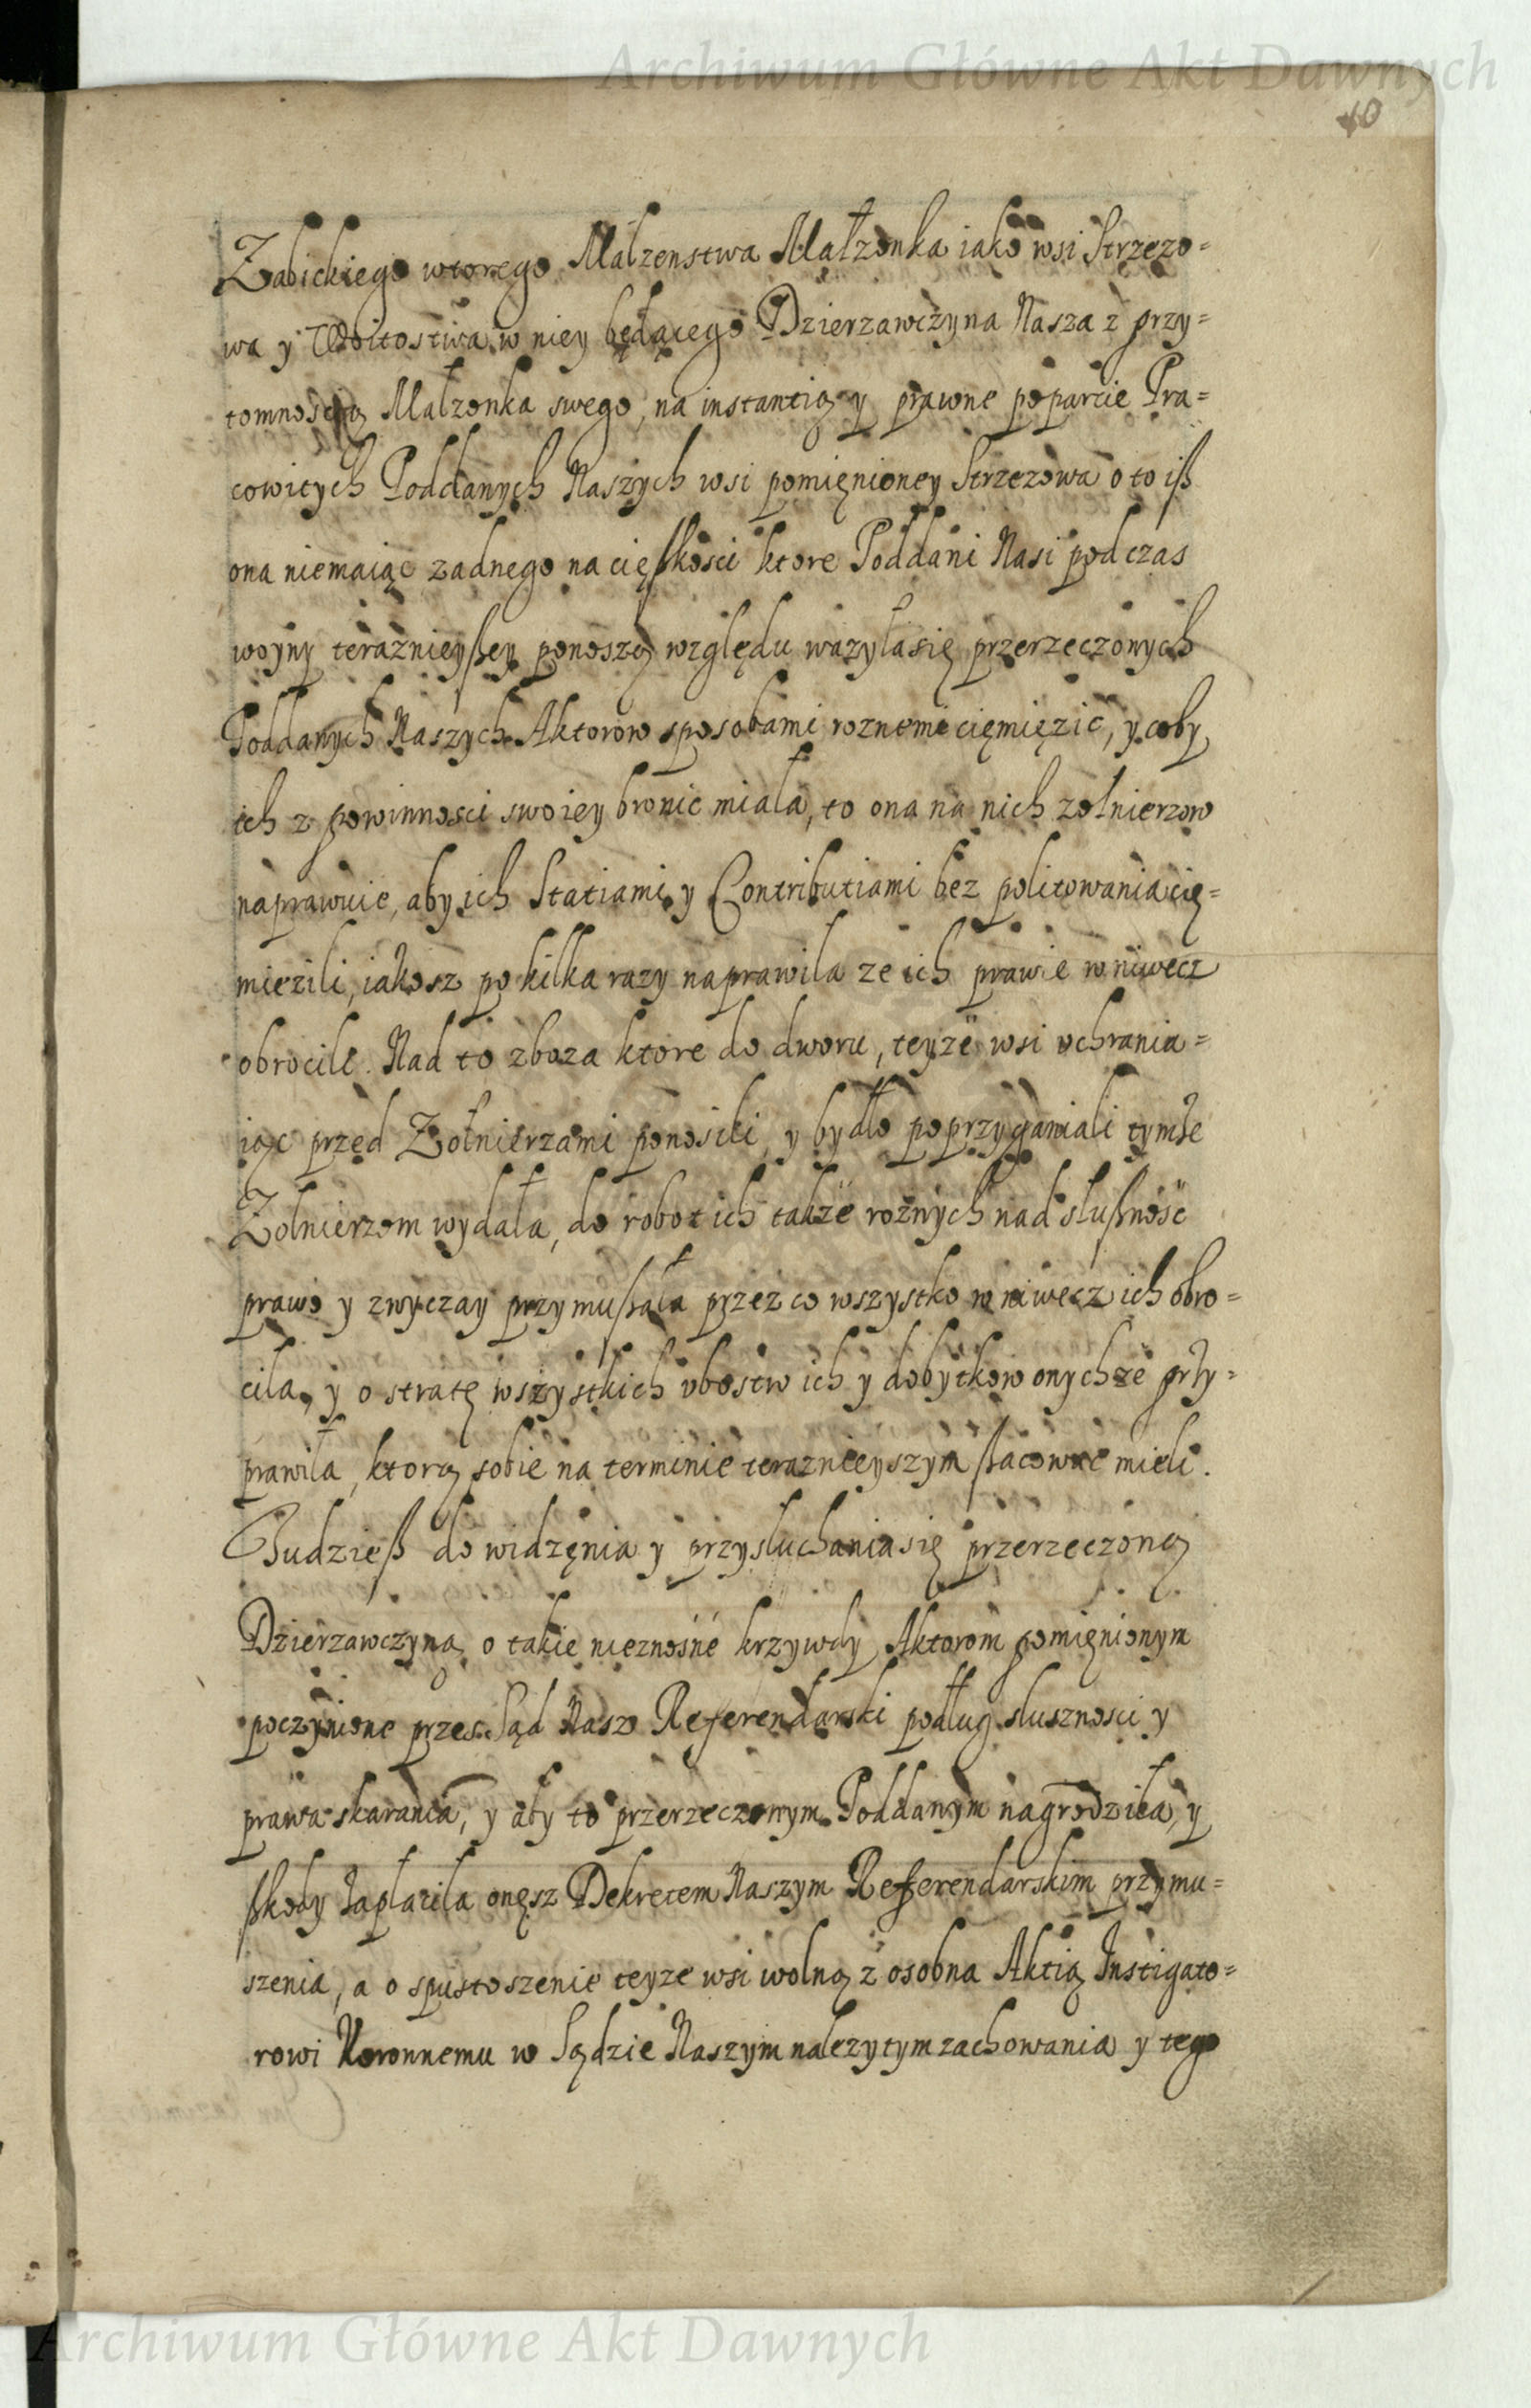 Archiwum Główne Akt Dawnych
10
Zabickiego wtorego Malzenstwa Małzonka iako wsi Strzezo=
wa y Woitostwa w niey będącego Dzierzawczyna Nasza z przy=
tomnoscią Małzonka swego, na instantią y prawne poparcie Pra=
cowitych Poddanych Naszych wsi pomięnioney Strzezowa o to iß
ona niemaiąc zadnego na cięßkosci ktore Poddani Nasi podczas
woyny teraznieyßey ponoszą względu wazyłasię przerzeczonych
Poddanych Naszych Aktorow sposobami roznemi cięmięzic, y coby
ich z powinnosci swoiey bronic miała, to ona na nich zołnierzow
naprawuie, aby ich Statiami y Contributiami bez politowania cię=
miezili, iakosz po kilka razy naprawila ze ich prawie wniwecz
obrocili. Nad to zboza ktore do dworu, teyze wsi uchrania=
iąc przed Zołnierzami ponosili, y bydło poprzyganiali tymże
Zolnierzom wydała, do robot ich także rożnych nad slußnosc
prawo y zwyczay przymußała przez co wszystko w niwecz ich obro=
cila, y o stratę wszystkich ubostw ich y dobytkow onychże przy=
prawiła, ktorą sobie na terminie teraznieyszym ßacowac mieli.
Tudzieß do widzęnia y przysluchania się przerzeczoną
Dzierzawczyną o takie nieznosné krzywdy Aktorom pomięnionym
poczynione przes Sąd Nasz Referendarski podług slusznosci y
prawa skarania, y aby to przerzeczonym Poddanym nagrodziła, y
ßkody zaplaciła onęsz Dekretem Naszym Referendarskim przymu=
szenia, a o spustoszenie teyze wsi wolną z osobna Aktią Instigato=
rowi Koronnemu w Sądzie Naszym nalezytym zachowania y tego
Archiwum Główne Akt Dawnych